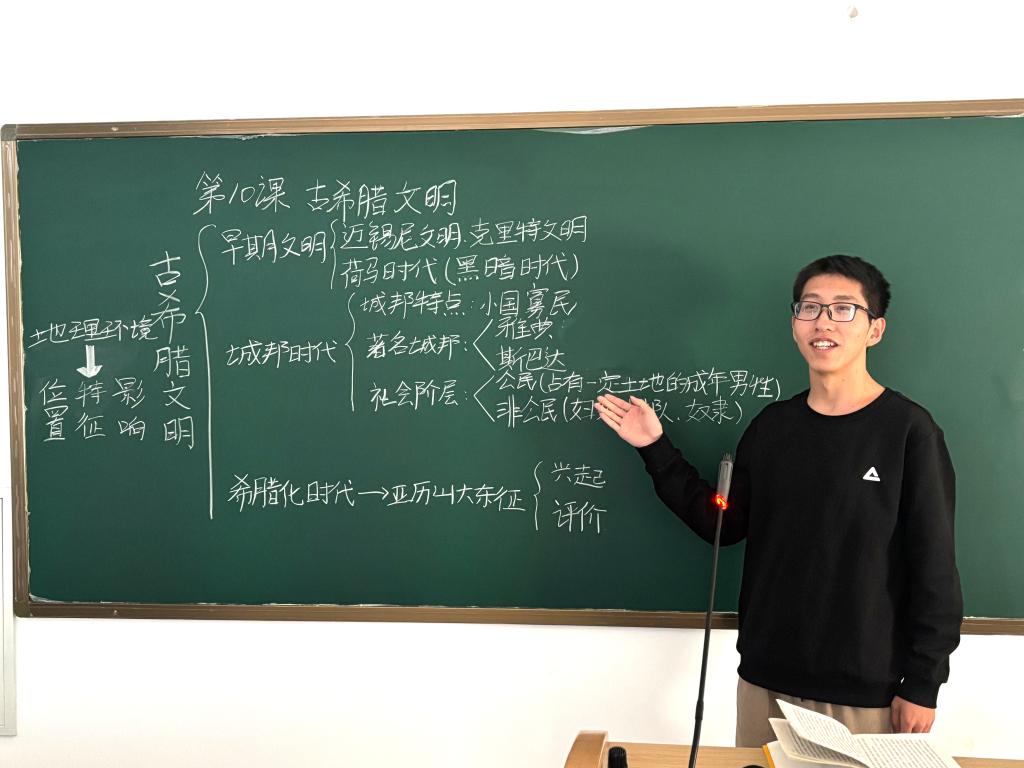 第10课 古希腊文明
地理环境
位置 特征 影响
古希腊文明
早期文明
迈锡尼文明、克里特文明
荷马时代(黑暗时代)
城邦时代
城邦特点:小国寡民
著名城邦:
雅典
斯巴达
社会阶层:
公民(占有一定土地的成年男性)
非公民(妇 、奴隶)
希腊化时代→亚历山大东征
兴起
评价